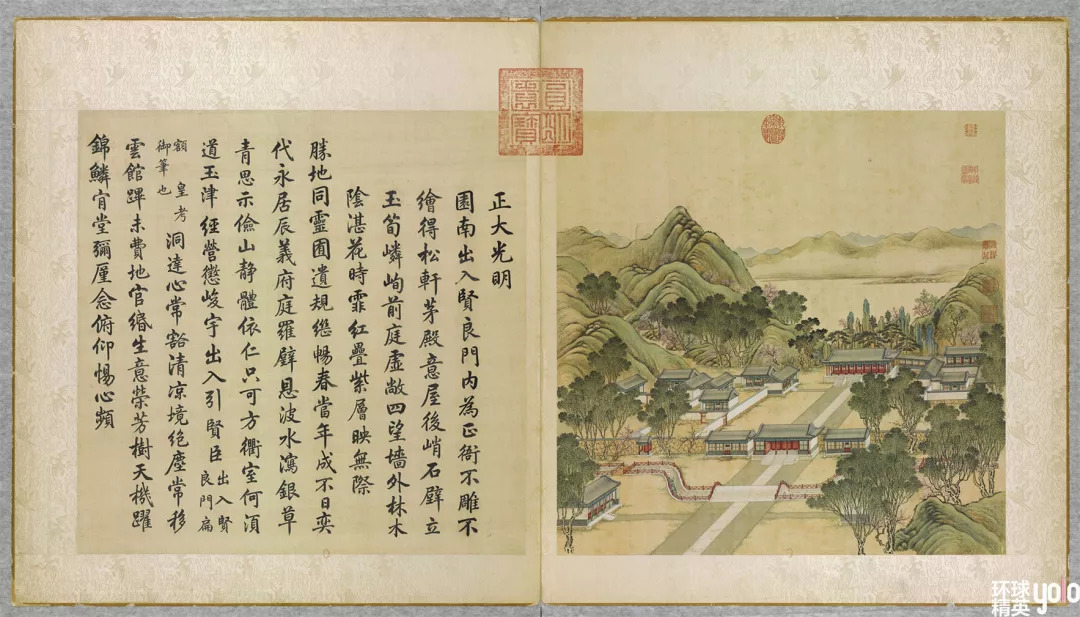 正大光明
園南出入賢良門內為正衙不雕不
繪得松軒茅殿意屋後峭石壁立
玉筍嶙峋前庭虛敞四望墻外林木
陰湛花時霏紅疊紫層映無際
勝地同靈囿遺規繼暢春當年成不日奕
代永居辰義府庭羅璧恩波水瀉銀草
青思示儉山靜體依仁只可方衢室何須
道玉津經營懲峻宇出入引賢臣
出入賢
良門扁
額皇考
御筆也
洞達心常豁清涼境絕塵常移
雲館蹕未費地官緡生意榮芳樹天機躍
錦鱗肯堂彌厪念俯仰惕心頻
环球
精英
yolo